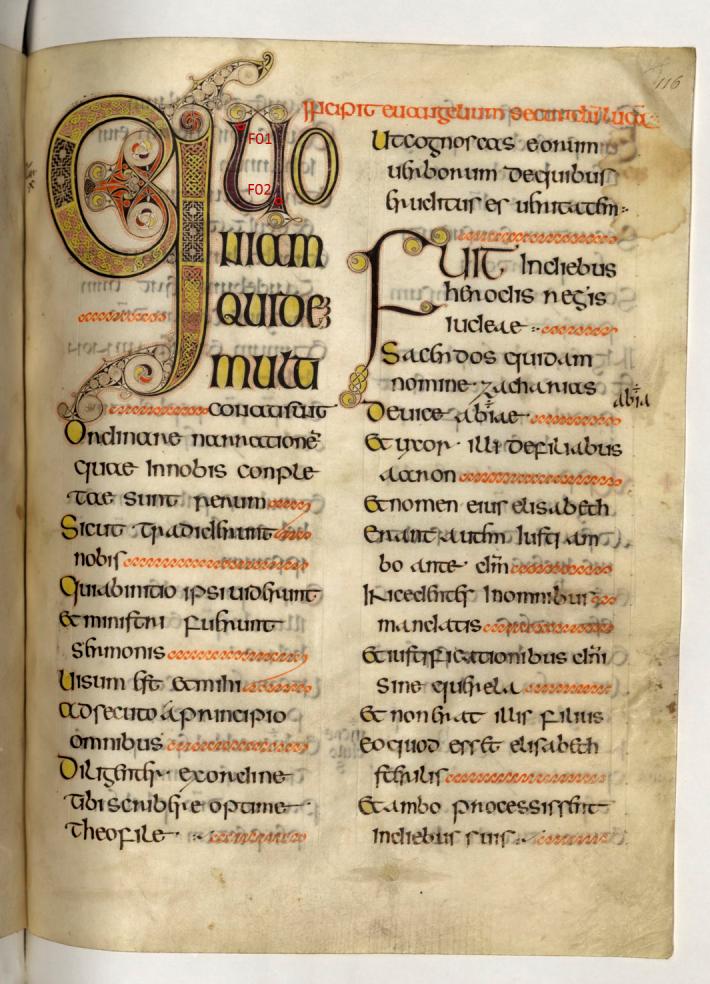 116
Incipit euangelium secundū lucā
FO1
FO2
QUO
niam
quidē
multi
conati sunt
Ordinare narrationē
quae In nobis conple
tae sunt rerum
Sicut tradiderunt
nobis
Qui ab initio ipsi uiderunt
et ministri fuerunt
sermonis
Uisum est et mihi
adsecuto a principio
omnibus
Diligenter ex ordine
tibi scribere optime
theofile
Ut cognoscas eorum
uerborum de quibus
eruditus es ueritatem
Fuit In diebus
herodis regis
iudeae
Sacerdos quidam
nomine zacharias
De uice abiae
abia
Et uxor illi de filiabus
aaron
Et nomen eius elisabeth
Erant autem Iusti am
bo ante dm
Incedentes In omnibus
mandatis
Et iustificationibus dni
sine querela
Et non erat illis filius
eo quod esset elisabeth
sterilis
Et ambo processissent
In diebus suis